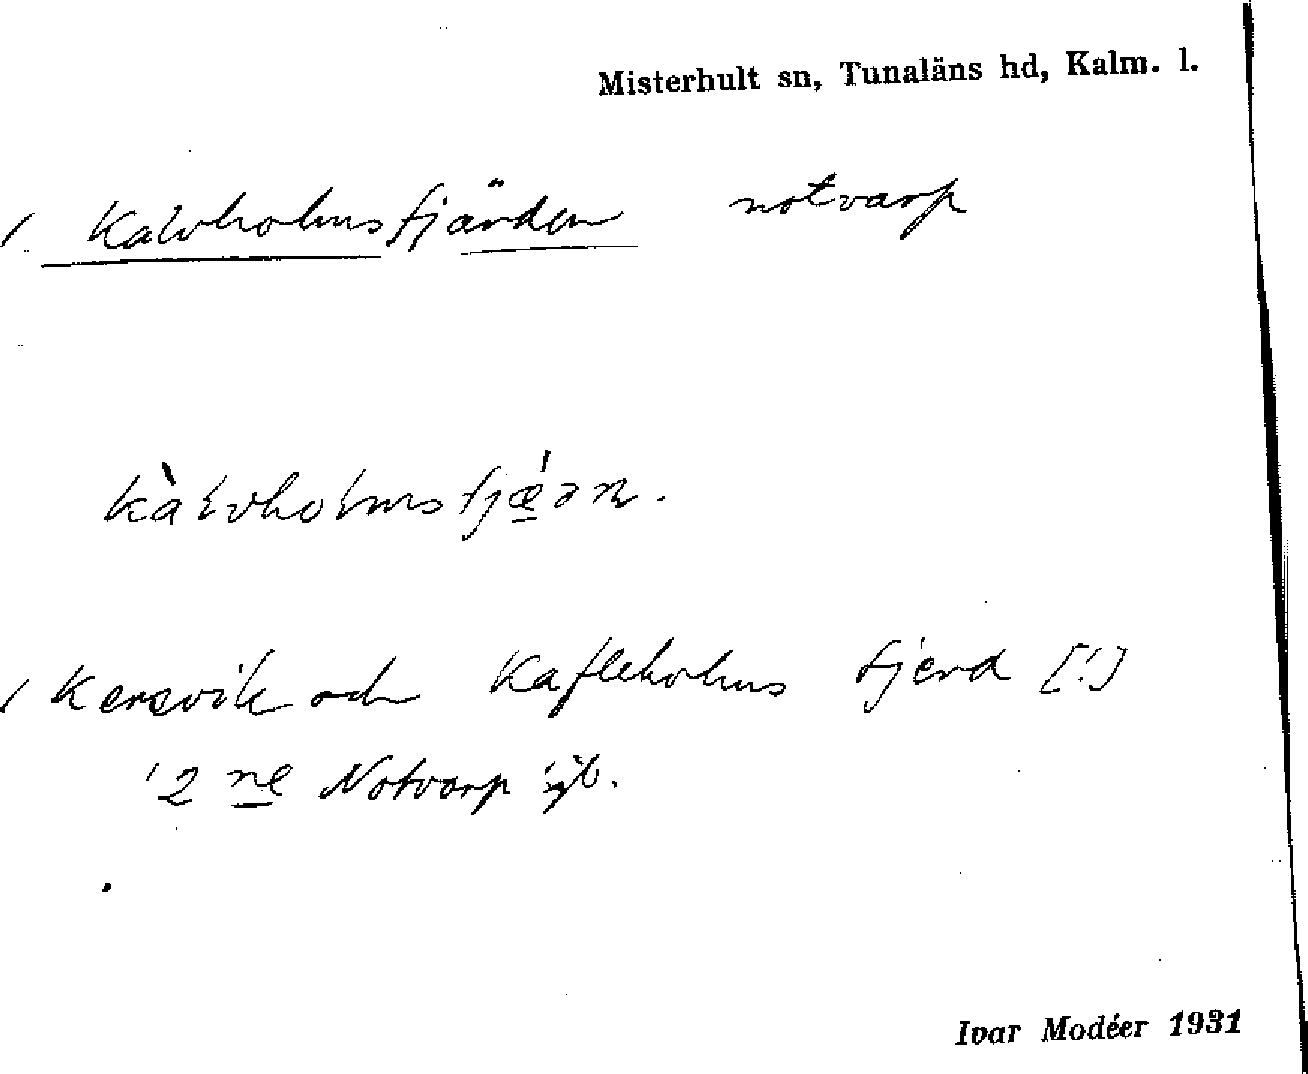 Misterhult sn, Tunaläns hd, Kalm. l.
Kalvholmsfjärden notvarp
kàlvholmsfjǽən.
Kersvik och Kafleholms fjerd [!]
2 ne Notvarp
Ivar Modéer 1931